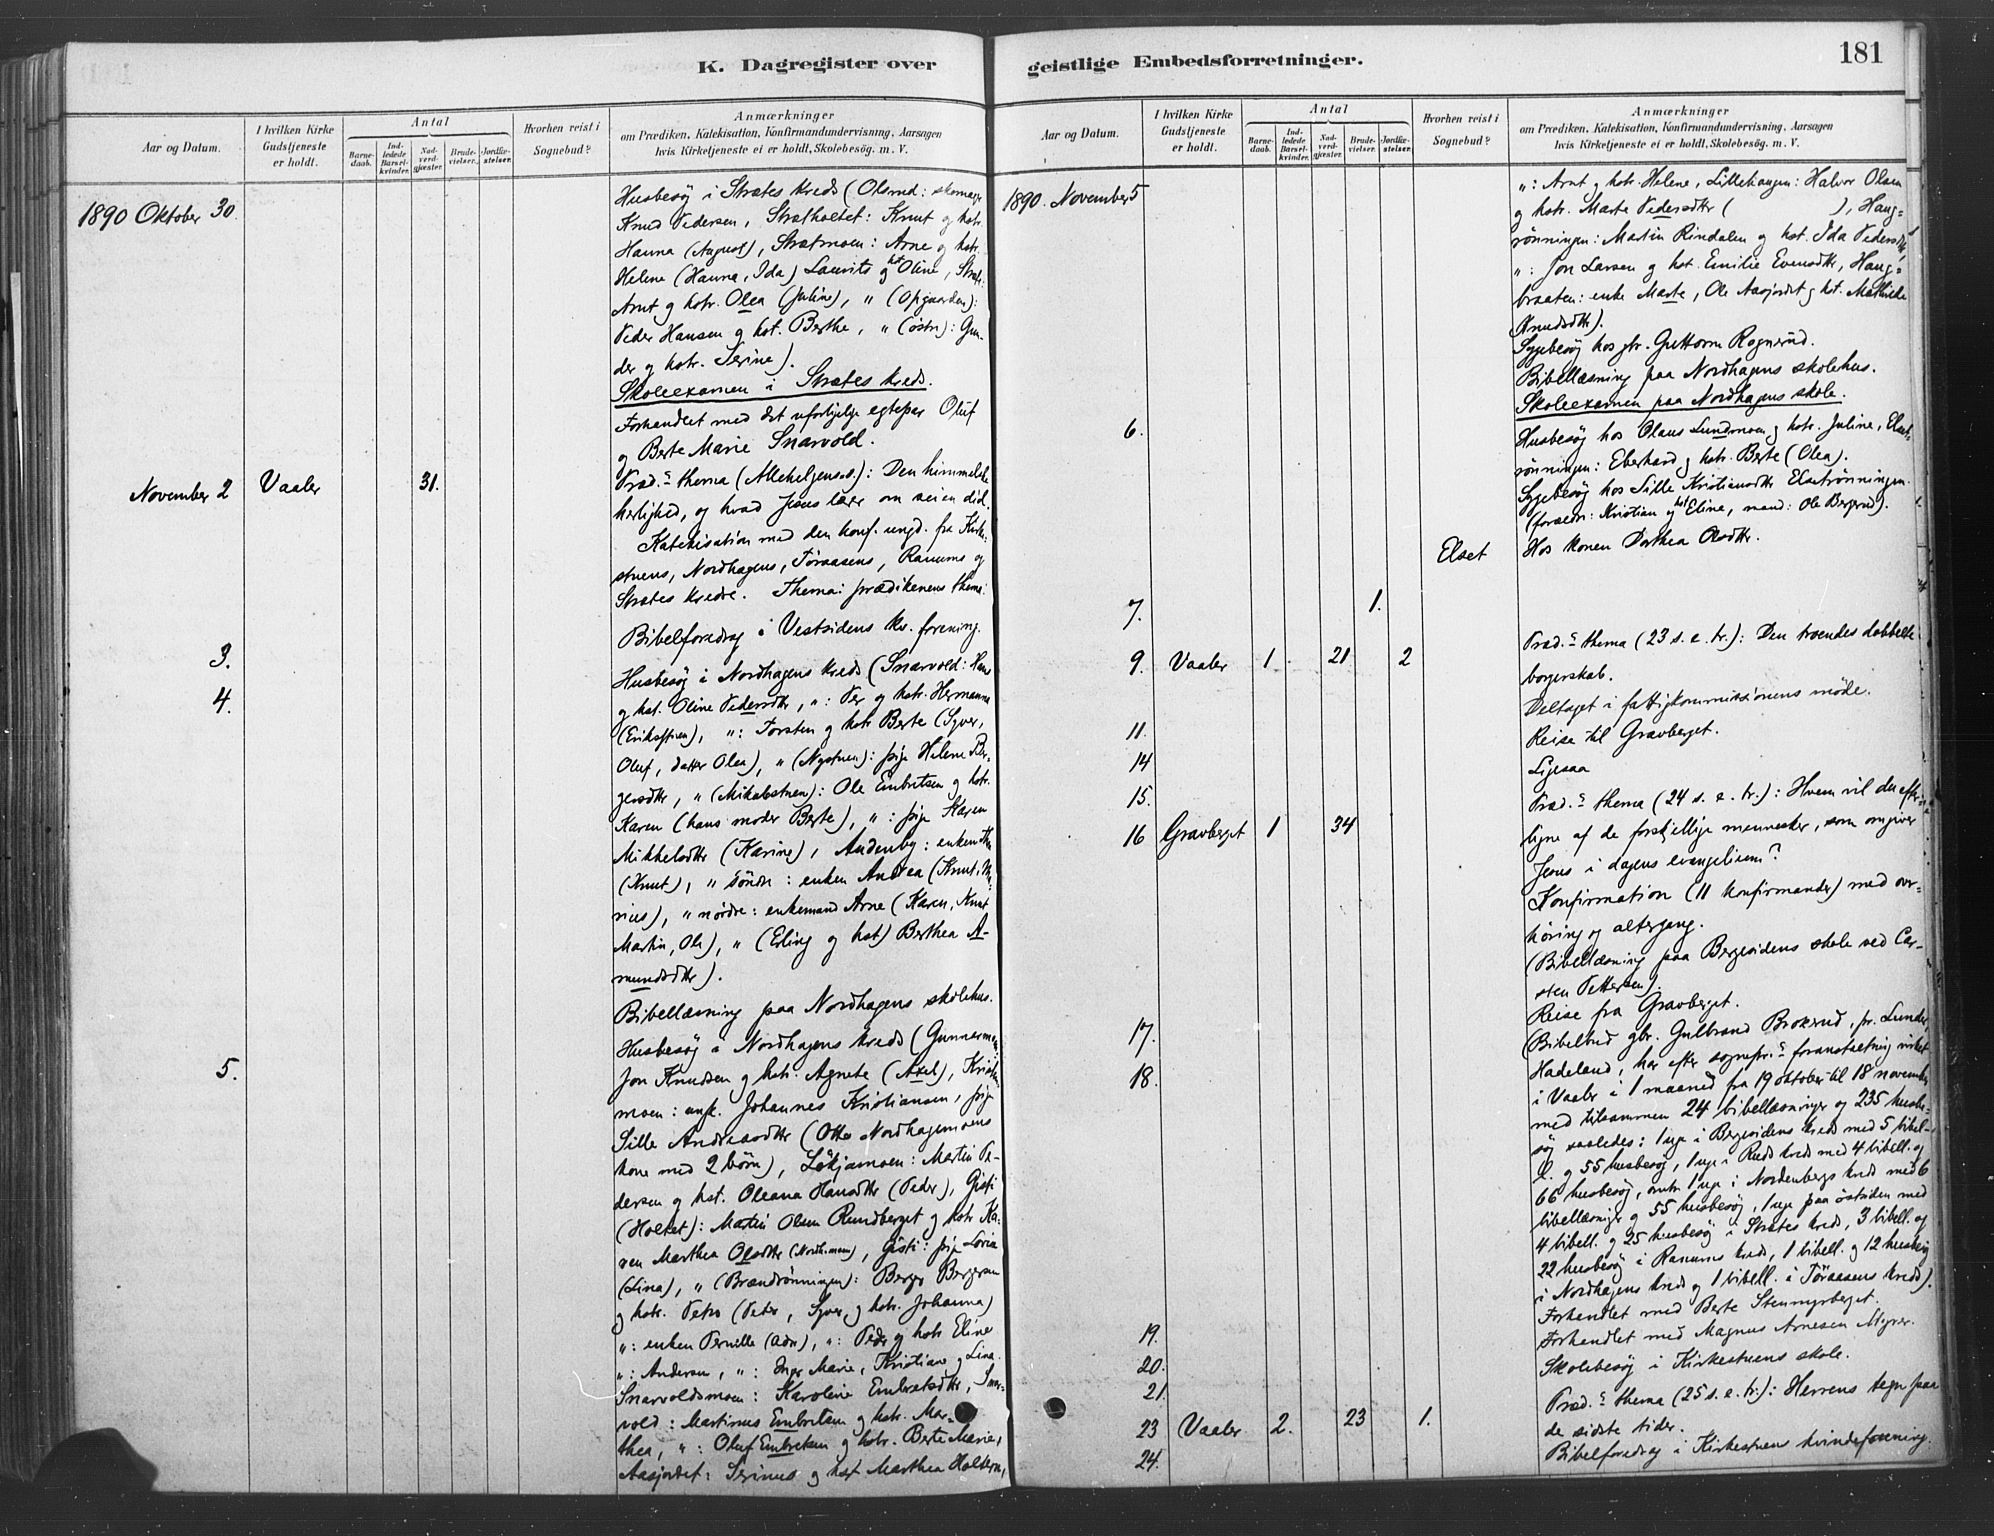 K. Dagregister over
Aar og Datum.
I hvilken Kirke Gudstjeneste er holdt.
Antal
Barnedaab.
Indledede Barselkvinder.
Nadverdgjæster.
Brudevielser.
Jordfæstelser.
Hvorhen reist i Sognebud?
Anmærkninger
om Prædiken, Katekisation, Konfirmandundervisning, Aarsagen
hvis Kirketjeneste ei er holdt, Skolebesög. m. V.
1890 Oktober 30.
Husbesög i Strætes kreds (Olsrud: skomager
Knud Pedersen, Strætholtet: Knut og hstr.
Hanna (August), Strætmoen: Arne og hstr.
Helene (Hanna, Ida) Laurits og hst Oline, Stræt:
Arnt og hstr. Olea (Juline), " (Opgaarden):
Peder Hansen og hst. Berthe, " (östre): Gun-
der og hstr. Serine).
Skoleexamen i Strætes kreds.
Forhandlet med det uforligelige egtepar Oluf
og Berte Marie Snarvold.
November 2 Vaaler 31.
Præd.s thema (Allehelgensd.): Den himmelske
herlighed, og hvad Jesus lærer om veien did.
Katekisation med den konf. ungd. fra Kirke-
stuens, Nordhagens, Töraasens, Ranums og
Strætes kredse. Thema: prædikenens thema.
3.
Bibelforedrag i Vestsidens kv. forening.
4.
Husbesög i Nordhagens kreds (Snarvold: Hans
og hst. Oline Pedersdtr, ": Per og hstr. Hermanna
(Erikstuen), ": Torsten og hstr Berte (Syver,
Oluf, datter Olea), " (Nystuen): pige Helene Ber-
gersdtr, " (Mikalstuen): Ole Embretsen og hstr.
Karen (hans moder Berte), ": pige Karen
Mikkelsdtr (Karine), Audenby: enkem Ole
(Knut), " söndre: enken Andrea (Knut, Ma-
rius), " nördre: enkemand Arne (Karen, Knut
Martin, Ole), " (Erling og hst) Berthea A-
mundsdtr).
Bibellæsning paa Nordhagens skolehus.
5.
Husbesög i Nordhagens kreds (Gunnarmoen:
Jon Knudsen og hstr. Agnete (Axel), Kristian-
moen: ungk. Johannes Kristiansen, pige
Sille Andreasdtr (Otto Nordhagemoens
kone med 2 börn), Lökjamoen: Martin Pe-
dersen og hst. Oleana Hansdtr (Peder), Gisti
(Holtet): Martin Olsen Rundberget og hstr Ka-
ren Marthea Olsdtr (Nordhimoen), Gisti: pige Lovise
(Lina), " (Brændrönningen): Berger Bergersen
og hstr. Petro (Peter, Syver, og hstr. Johanna)
": enken Pernille (Adn), ": Peder og hstr Eline
": Andersen, ": Inger Marie, Kristiane og Lina
Snarvoldsmoen: Karoline Embretsdtr, Snar-
vold: Martinus Embretsen og hstr. Mar-
thea, ": Oluf Embretsen og hstr. Berte Marie,
Aasjordet: Serinus og hst Marthea Holteru,
geistlige Embedsforretninger.
181
Aar og Datum.
I hvilken Kirke Gudstjeneste er holdt.
Antal
Barnedaab.
Indledede Barselkvinder.
Nadverdgjæster.
Brudevielser.
Jordfæstelser.
Hvorhen reist i Sognebud?
Anmærkninger
om Prædiken, Katekisation, Konfirmandundervisning, Aarsagen
hvis Kirketjeneste ei er holdt, Skolebesög. m. V.
1890. November 5
": Arnt og hstr. Helene, Lillehaugen: Halvor Olsen
og hstr. Marte Pedersdtr ( ), Haug-
rönningen: Martin Rindalen og hst. Ida Pedersdtr,
": Jon Larsen og hst. Emilie Evensdtr, Haug-
braaten: enke Marte, Ole Aasjordet og hst. Mathilde
Knudsdtr).
Sygebesög hos gbr. Guttorm Rognerud.
Bibellæsning paa Nordhagens skolehus.
Skoleexamen paa Nordhagens skole.
6.
Husbesög hos Olaus Lundmoen og hstr. Juline, Elset-
rönningen: Eberhard og hstr. Berte (Olea).
Sygebesög hos Sille Kristiansdtr Elsetrönningen.
(foreldre: Kristian og hst Eline, mand: Ole Bergerud).
Elset Hos konen Dorthea Olsdtr.
7. 1.
9. Vaaler 1 21 2
Præd.s thema (23 s. e. tr.): Den troendes dobbelte
borgerskab.
11.
Deltaget i fattigkommissionens möde.
14
Reise til Gravberget.
15.
Ligesaa
16 Gravberget 1 34
Præd.s thema (24 s. e. tr.): Hvem vil du efter-
ligne af de forskjellige mennesker, som omgiver
Jesus i dagens evangelium?
Konfirmation (11 konfirmander) med over-
höring og altergang.
(Bibellæsning paa Bergesidens skole ved Car-
sten Pettersen).
17.
Reise fra Gravberget.
18.
(Bibelbud gbr. Gulbrand Brokerud, pr. Lunder,
Hadeland, har efter sognepr.s foranstaltning virket
i Vaaler i 1 maaned fra 19 oktober til 18 november
med tilsammen 24 bibellæsninger og 235 husbe-
sög saaledes: 1 uge i Bergesidens kreds med 5 bibel-
l. og 55 husbesög, 1 uge i Ruds kreds med 4 bibell. og
66 husbesög, omtr. 1 uge i Nordenbergs kreds med 6
bibellæsninger og 55 husbesög, 1 uge paa östsiden med
4 bibell. og 25 husbesög i Strætes kreds, 3 bibell. og
22 husbesög i Ranums kreds, 1 bibell. og 12 husbesög
i Nordhagens kreds og 1 bibell. i Töraasens kreds).
19.
Forhandlet med Berte Stenmyrberget.
20.
Forhandlet med Magnus Arnesen Myrer.
21.
Skolebesög i Kirkestuens skole.
23 Vaaler 2. 23 1.
Præd.s thema (25 s. e. tr.): Herrens tegn paa
de sidste tider.
24.
Bibelforedrag i Kirkestuens kvindeforening.